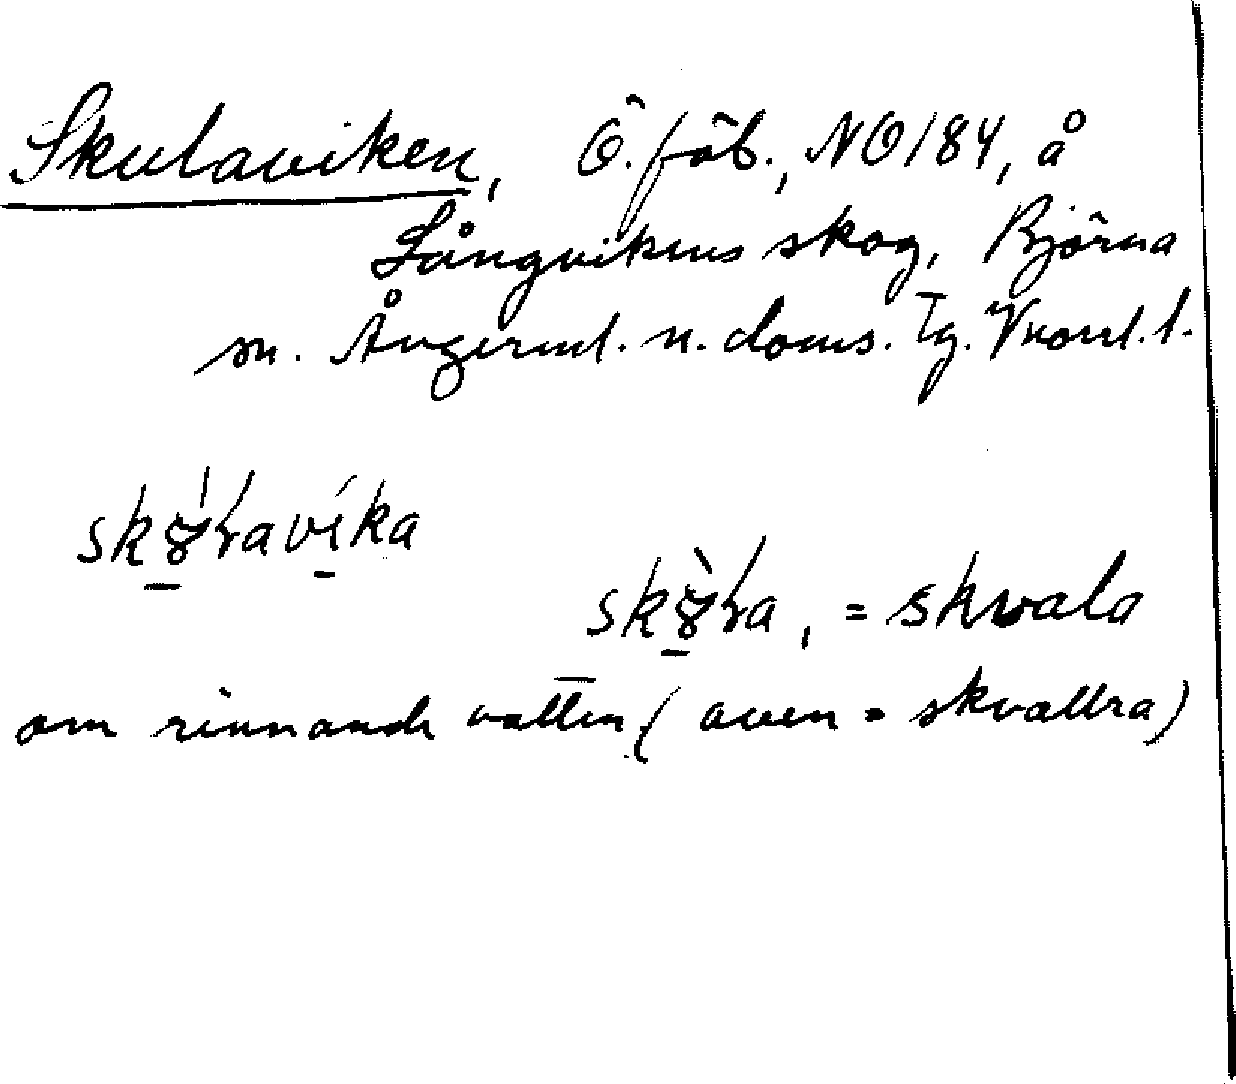 Skulaviken, Ö. fäb., NO184, å
Långvikens skog, Björna
sn. Ångerml. n. doms. Tg. Vnorrl. l.
skvala
om rinnande vatten (även = skvallra)